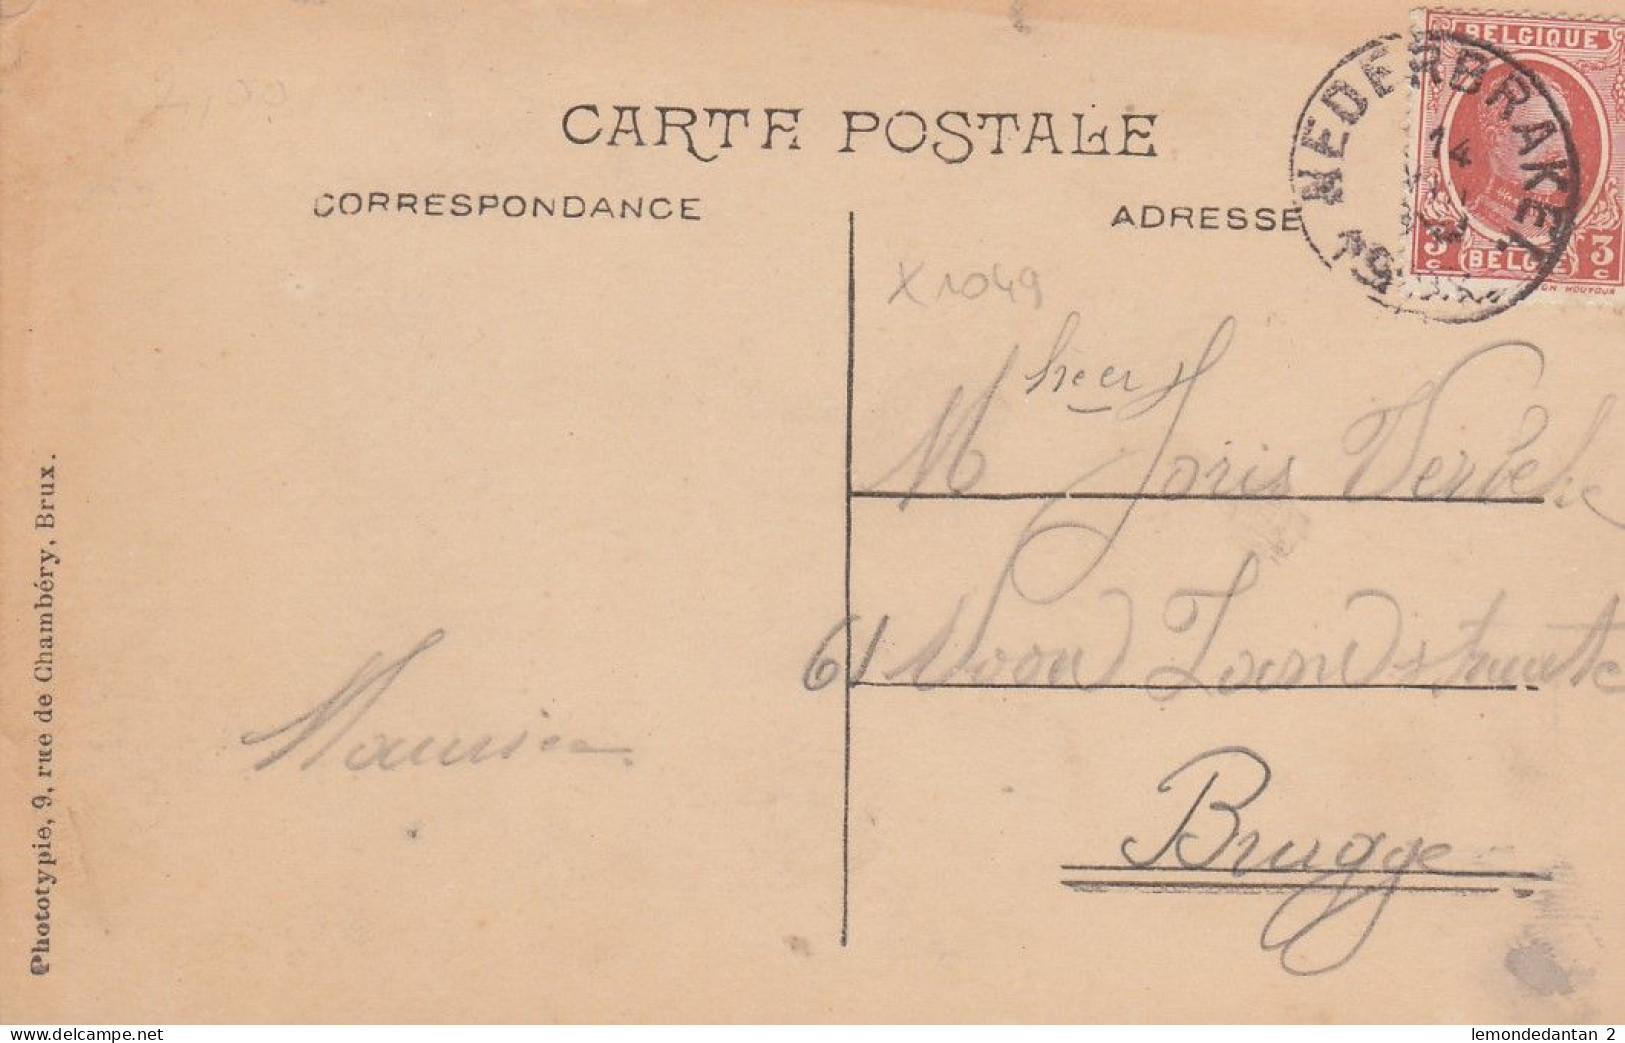 2,00
CARTE POSTALE
CORRESPONDANCE
ADRESSE
BELGIQUE
3 c BELGIE 3 c
HOUYOUX
NEDERBRAKEL
14
X1049
Mheer Joris Verbeke
61 Noord Zandstraate
Brugge
Maurice
Phototypie, 9, rue de Chambéry, Brux.
www.delcampe.net
lemondedantan 2